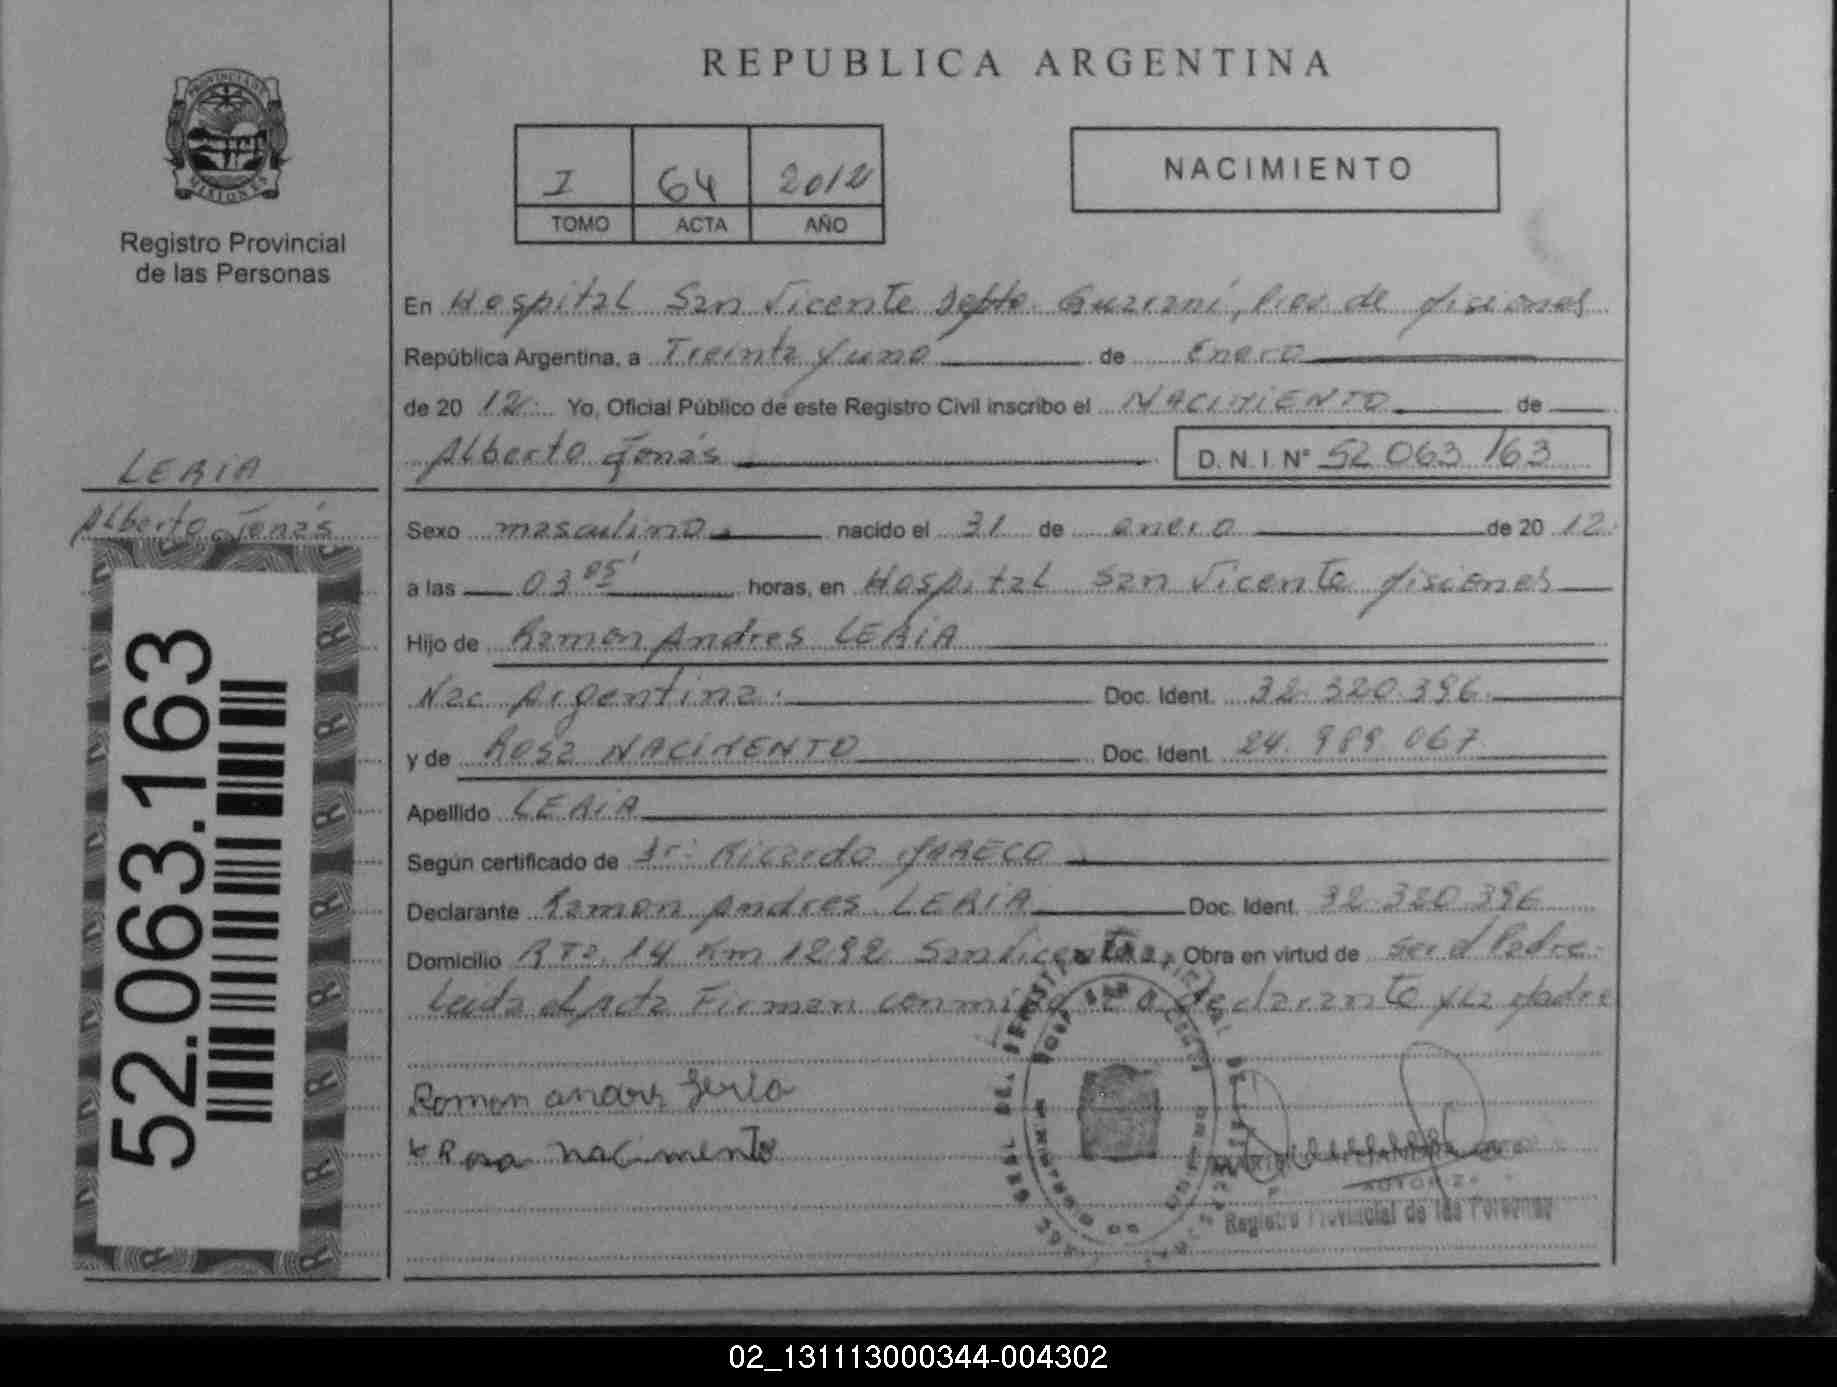 PROVINCIA DE
MISIONES
Registro Provincial
de las Personas
LERIA
Alberto Jonás
52.063.163
REPUBLICA ARGENTINA
I 64 2012
TOMO ACTA AÑO
NACIMIENTO
En Hospital San Vicente Depto. Guaraní, Prov. de Misiones
República Argentina, a Treinta y uno de Enero
de 2012. Yo, Oficial Público de este Registro Civil inscribo el NACIMIENTO de
Alberto Jonás D.N.I. N° 52 063 163
Sexo masculino nacido el 31 de enero de 2012.
a las 03 05' horas, en Hospital San Vicente Misiones
Hijo de Ramon Andres LERIA
Nac Argentina. Doc. Ident. 32.320.396.
y de Rosa NACIMENTO Doc. Ident. 24.989.067
Apellido LERIA
Según certificado de Dr: Ricardo MARECO
Declarante Ramon Andres LERIA Doc. Ident. 32.320.396
Domicilio RTa. 14 Km 1292 San Vicente. Obra en virtud de Ser el Padre.
Leida el Acta Firman conmigo el declarante y La Madre
Ramon andres Leria
Rosa nacimento
Registro Provincial de las Personas
02_131113000344-004302